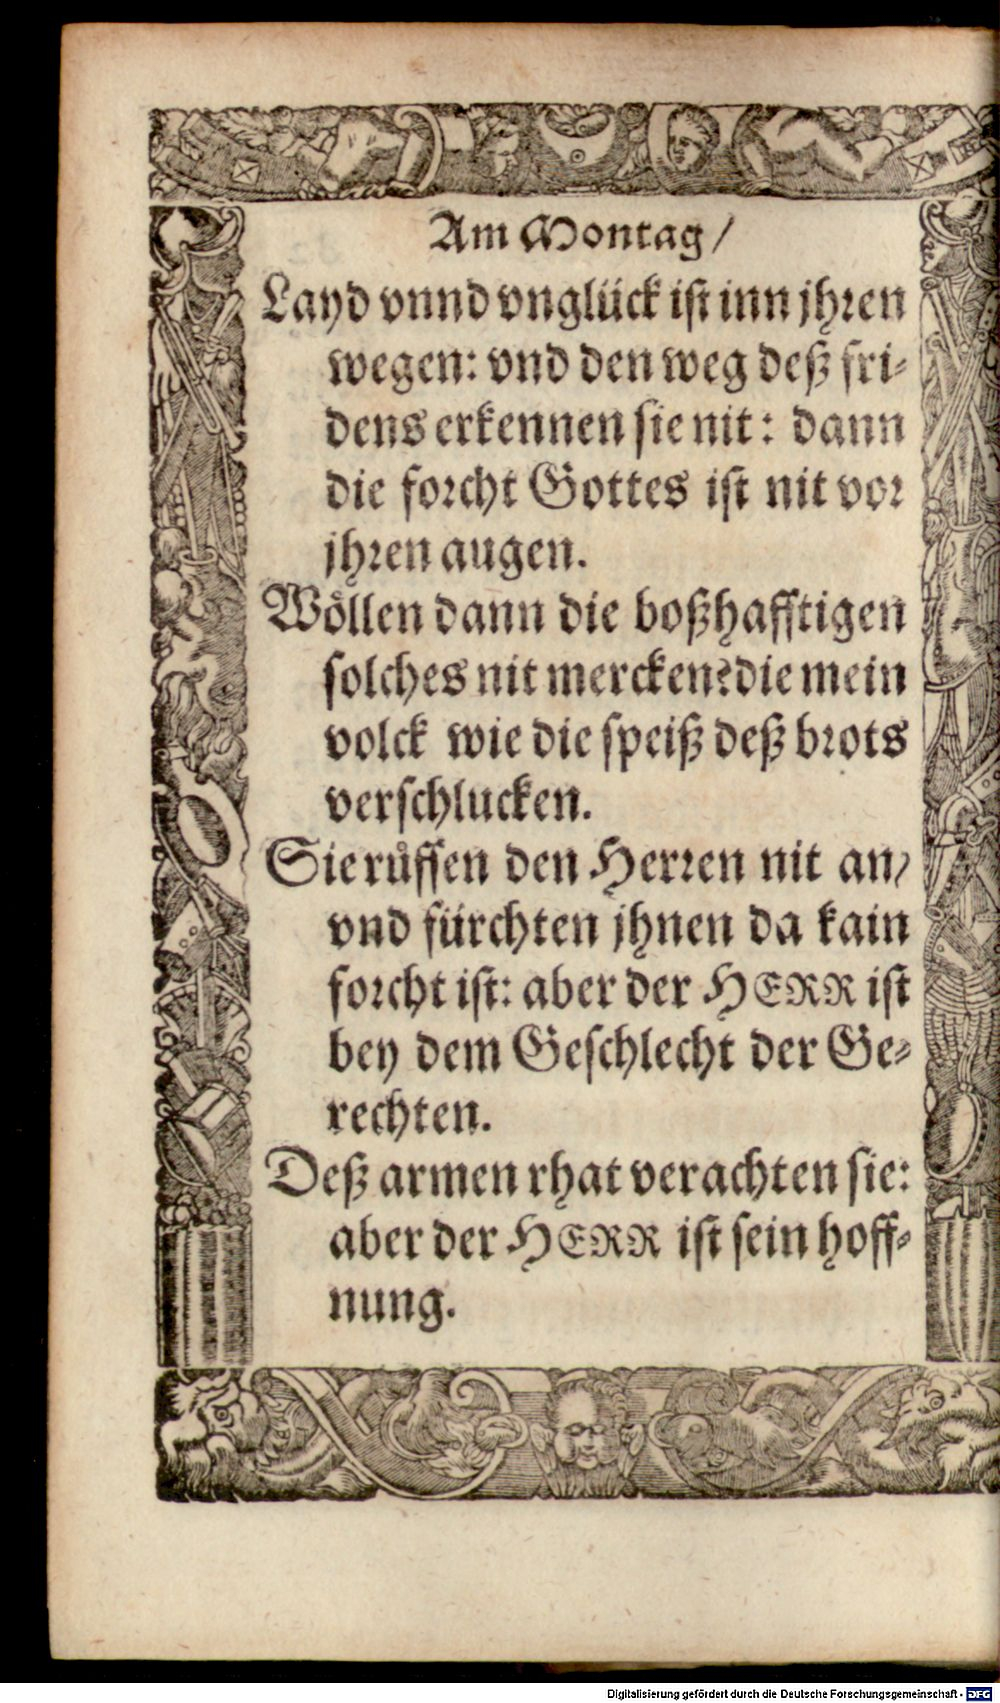 Am Montag/
Layd vnnd vnglück ist inn jhren
wegen: vnd den weg deß fri-
dens erkennen sie nit: dann
die forcht Gottes ist nit vor
jhren augen.
Wöllen dann die boßhafftigen
solches nit mercken? die mein
volck wie die speiß deß brots
verschlucken.
Sie rüffen den Herren nit an/
vnd fürchten jhnen da kain
forcht ist: aber der HERR ist
bey dem Geschlecht der Ge-
rechten.
Deß armen rhat verachten sie:
aber der HERR ist sein hoff-
nung.
Digitalisierung gefördert durch die Deutsche Forschungsgemeinschaft - DFG